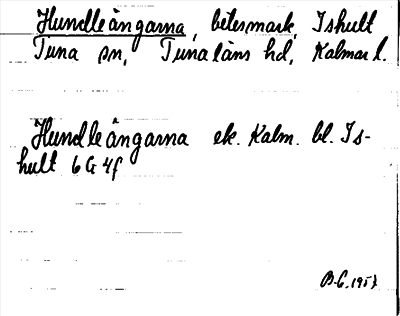 Hundleängarna, betesmark, Ishult
Tuna sn, Tunaläns hd, Kalmar l.
Hundleängarna ek. Kalm. bl. Is-
hult 6G 4f
B.G. 1951